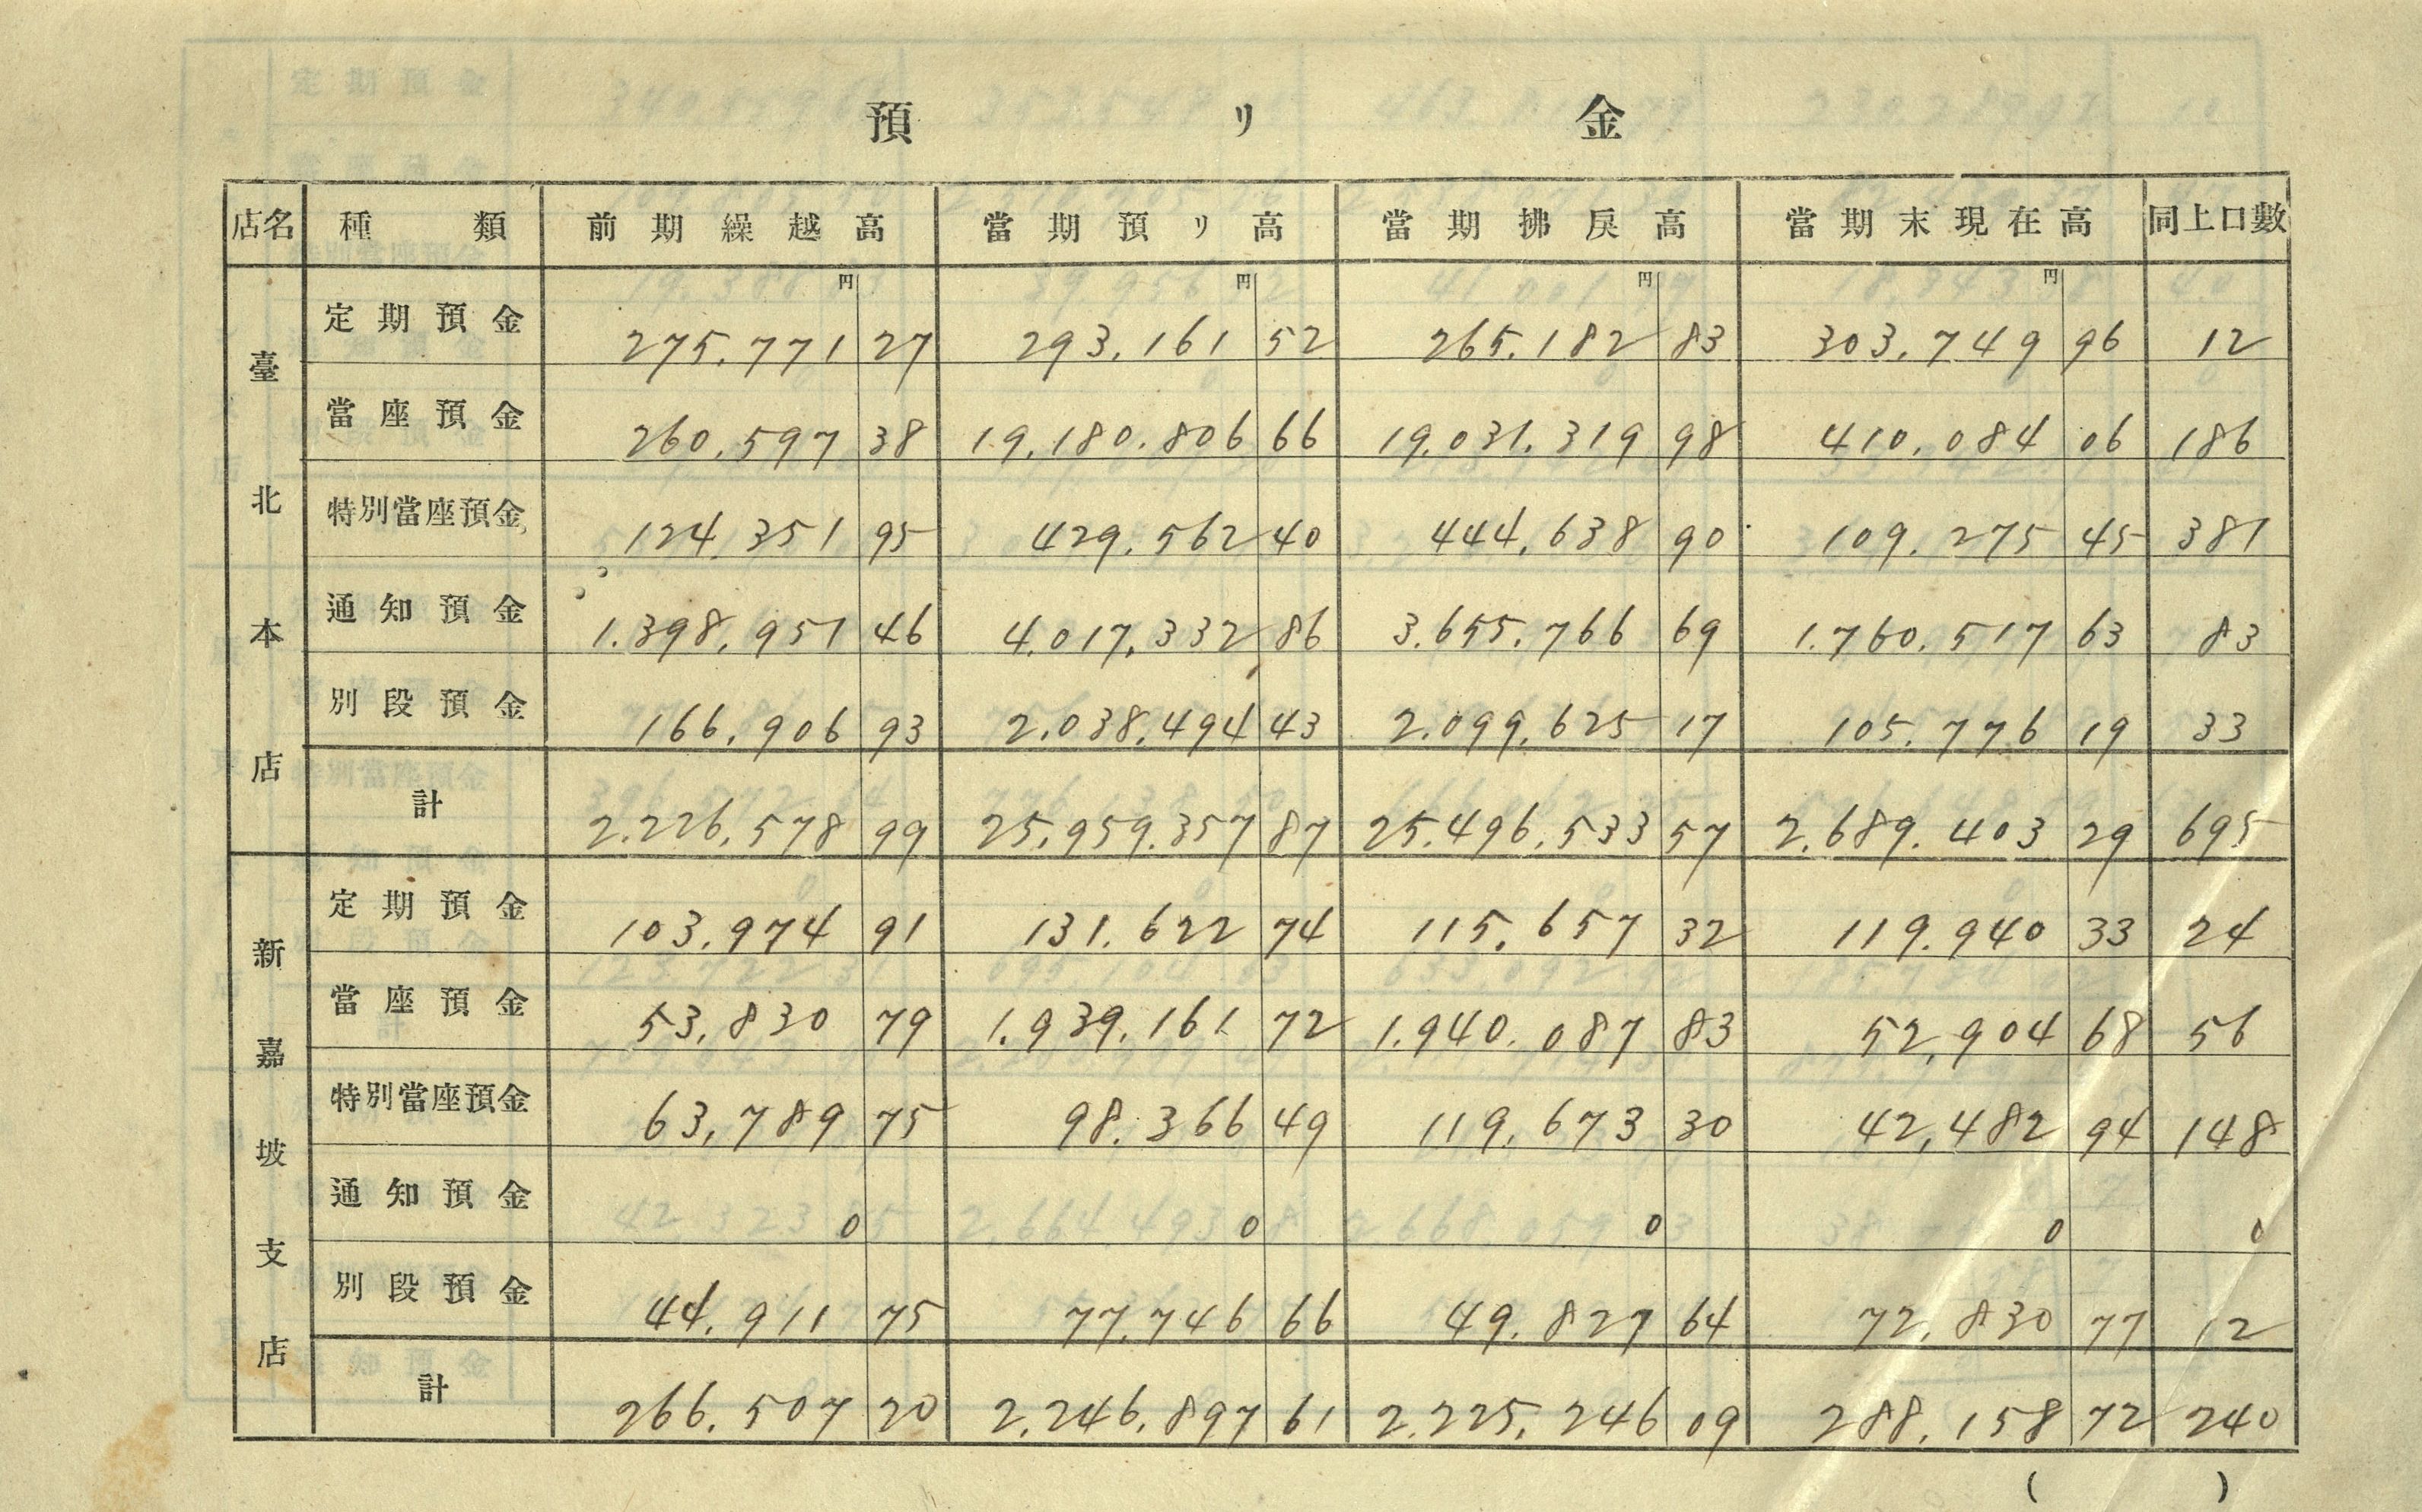 預リ金
店名 種類 前期繰越高 當期預リ高 當期拂戻高 當期末現在高 同上口數
円 円 円 円
臺北本店
定期預金 275.771 27 293.161 52 265.182 83 303.749 96 12
當座預金 260.597 38 19.180.806 66 19.031.319 98 410.084 06 186
特別當座預金 124.351 95 429.562 40 444.638 90 109.275 45 381
通知預金 1.398.951 46 4.017.332 86 3.655.766 69 1.760.517 63 83
別段預金 166.906 93 2.038.494 43 2.099.625 17 105.776 19 33
計 2.226.578 99 25.959.357 87 25.496.533 57 2.689.403 29 695
新嘉坡支店
定期預金 103.974 91 131.622 74 115.657 32 119.940 33 24
當座預金 53.830 79 1.939.161 72 1.940.087 83 52.904 68 56
特別當座預金 63.789 75 98.366 49 119.673 30 42.482 94 148
通知預金 0 0 0 0 0
別段預金 44.911 75 77.746 66 49.827 64 72.830 77 12
計 266.507 20 2.246.897 61 2.225.246 09 288.158 72 240
( )